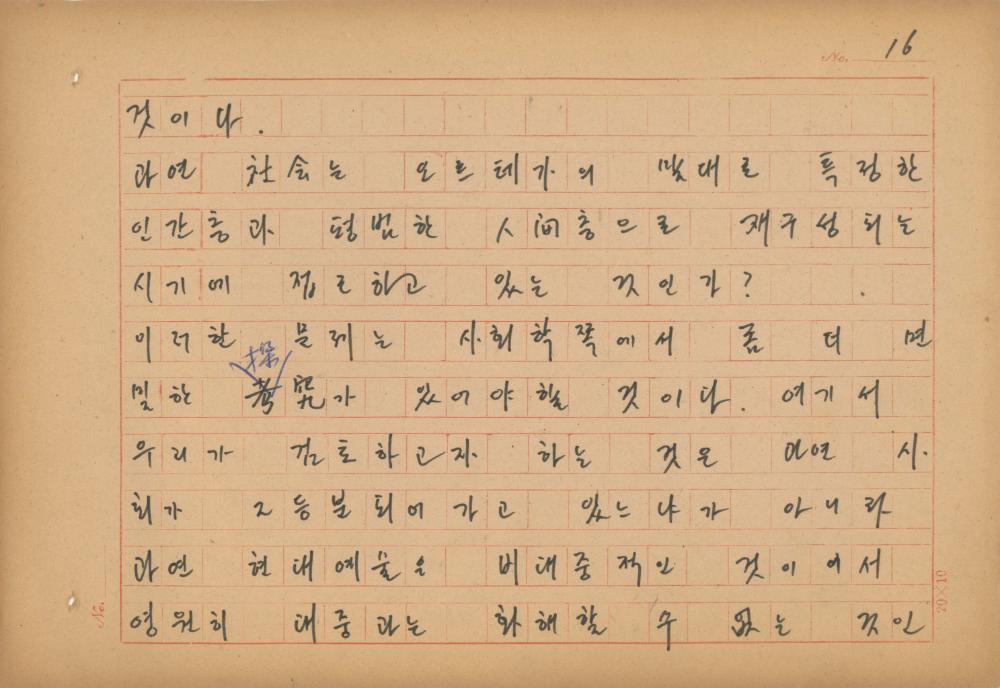 No. 16
것이다.
과연 社会는 오르테가의 말대로 특정한
인간층과 평범한 人间층으로 재구성되는
시기에 접근하고 있는 것인가?
이러한 문제는 사회학쪽에서 좀 더 면
밀한 探究가 있어야할 것이다. 여기서
우리가 검토하고자 하는 것은 과연 사
회가 2등분되어가고 있느냐가 아니라
과연 현대예술은 비대중적인 것이어서
영원히 대중과는 화해할 수 없는 것인
No.
20×10